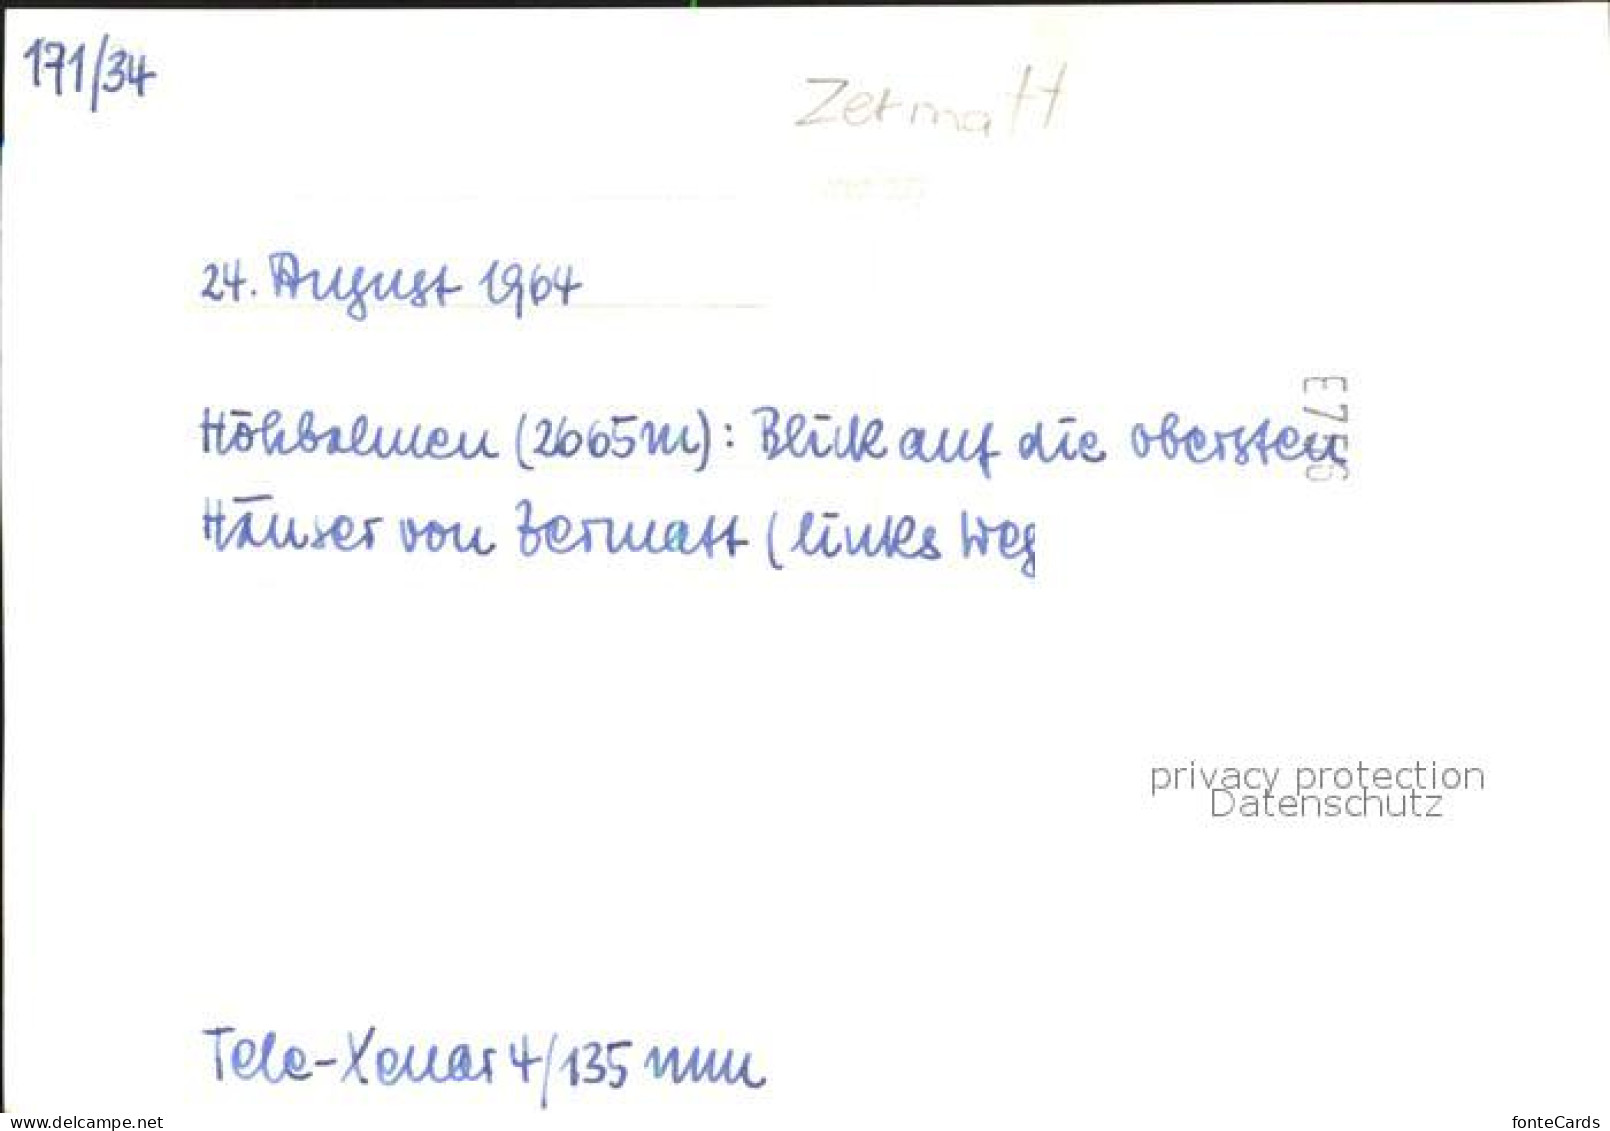 171/34
Zermatt
24. August 1964
Höhbalmen (2665m): Blick auf die obersten
Häuser von Zermatt (links Weg
E7566
privacy protection
Datenschutz
Tele-Xenar 4/135 mm
www.delcampe.net
fonteCards